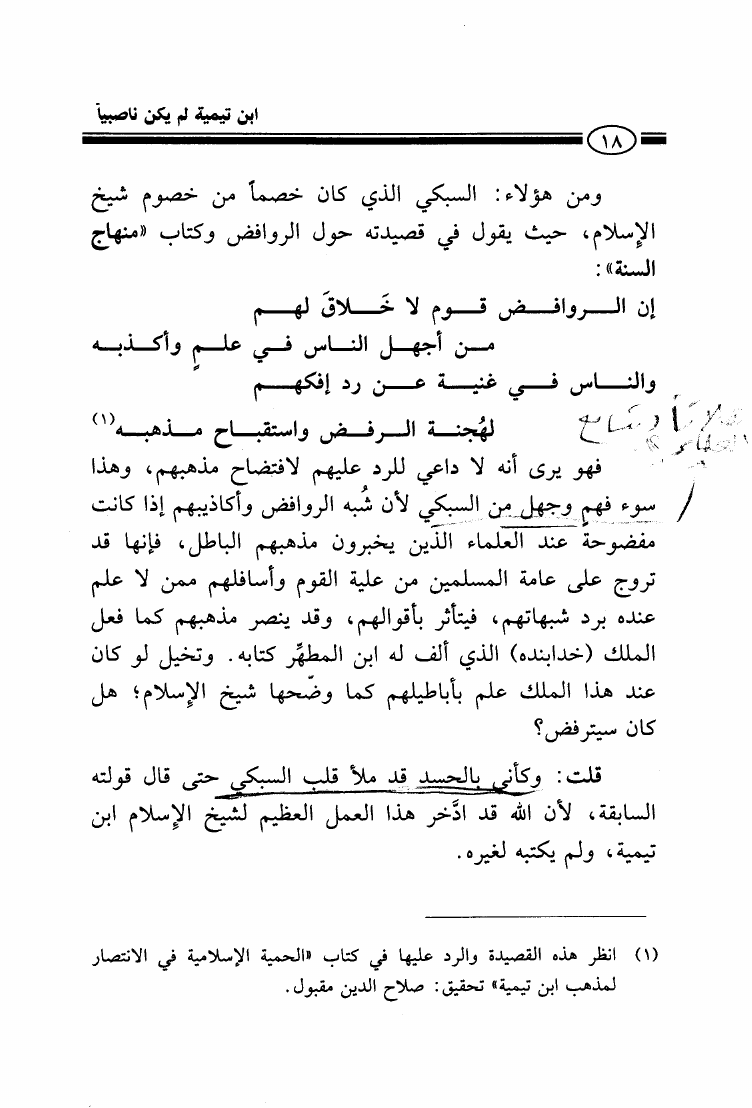 ابن تيمية لم يكن ناصبياً
١٨
ومن هؤلاء: السبكي الذي كان خصماً من خصوم شيخ
الإسلام، حيث يقول في قصيدته حول الروافض وكتاب «منهاج
السنة»:
إن الـــروافـــض قـــوم لا خَـــلاقَ لهـــم
مـــن أجهـــل النـــاس فـــي علـــمٍ وأكـــذبـــه
والنـــاس فـــي غنيـــة عـــن رد إفكهـــم
لهُجنـــة الـــرفـــض واستقبـــاح مـــذهبـــه(١)
فهو يرى أنه لا داعي للرد عليهم لافتضاح مذهبهم، وهذا
سوء فهمٍ وجهل من السبكي لأن شُبه الروافض وأكاذيبهم إذا كانت
مفضوحةً عند العلماء الذين يخبرون مذهبهم الباطل، فإنها قد
تروج على عامة المسلمين من علية القوم وأسافلهم ممن لا علم
عنده برد شبهاتهم، فيتأثر بأقوالهم، وقد ينصر مذهبهم كما فعل
الملك (خدابنده) الذي ألف له ابن المطهِّر كتابه. وتخيل لو كان
عند هذا الملك علم بأباطيلهم كما وضّحها شيخ الإسلام؛ هل
كان سيترفض؟
قلت: وكأني بالحسد قد ملأ قلب السبكي حتى قال قولته
السابقة، لأن الله قد ادَّخر هذا العمل العظيم لشيخ الإسلام ابن
تيمية، ولم يكتبه لغيره.
(١) انظر هذه القصيدة والرد عليها في كتاب «الحمية الإسلامية في الانتصار
لمذهب ابن تيمية» تحقيق: صلاح الدين مقبول.